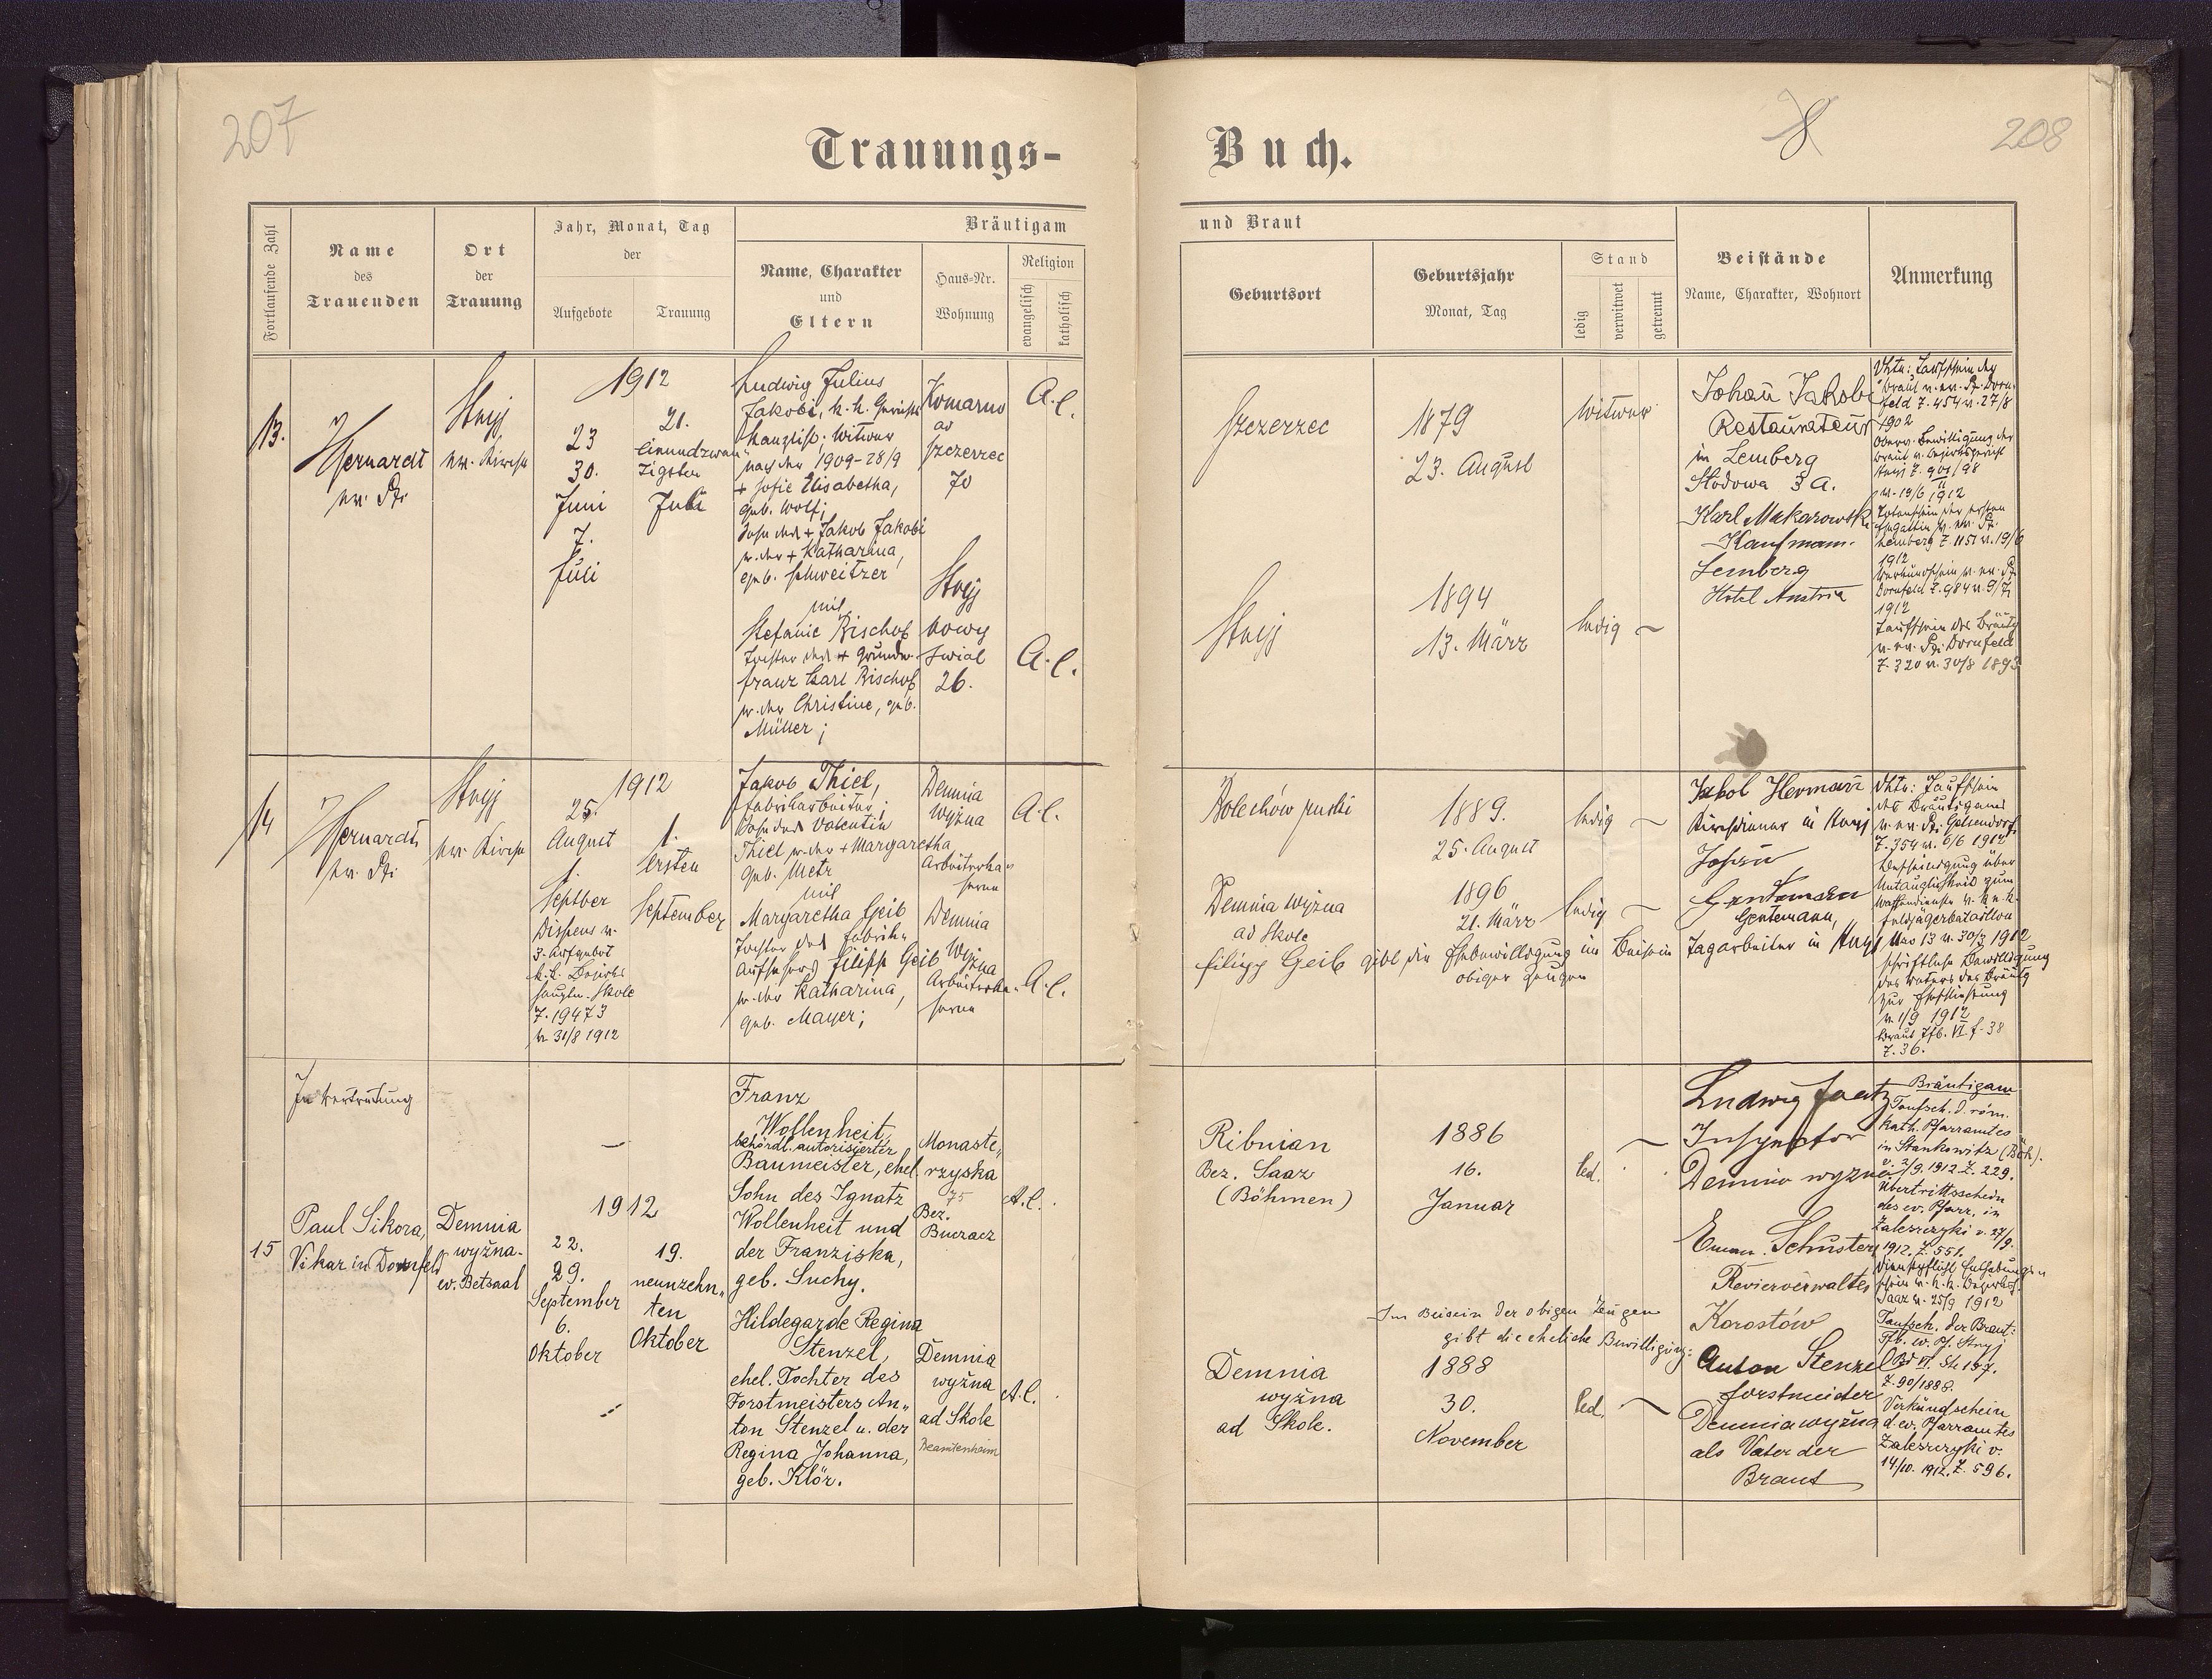 207
8
208
Trauungs-
Buch.
Fortlaufende Zahl
Name
des
Trauenden
Ort
der
Trauung
Jahr, Monat, Tag
der
Aufgebote
Trauung
Bräutigam
Name, Charakter
und
Eltern
Haus-Nr.
Wohnung
Religion
evangelisch
katholisch
und Braut
Geburtsort
Geburtsjahr
Monat, Tag
Stand
ledig
verwitwet
getrennt
Beistände
Name, Charakter, Wohnort
Anmerkung
13.
ev. Kirche
1912
23
30.
Juni
7.
Juli
21.
einundzwan-
zigsten
Juli
Ludwig Julius
Jakobi, k. k. Gerichts
kanzlist, Witwer
nach der 1909-28/9
+ Sofie Elisabetha,
geb. Wolf;
Sohn des + Jakob Jakobi
u. der + Katharina,
geb. Schweitzer
mit
Stefanie Bischof
Tochter des +
Franz Karl Bischof
u. der Christine, geb.
Müller;
Komarno
ad
Szczerzec
70
Stryj
nowy
swiat
26.
A. C.
A. C.
Szczerzec
1879
23. August
Witwer
Stryj
1894
13. März
ledig
Johan Jakobi
Restaurateur
in Lemberg
Stodowa 3 A.
Karl Makarowski
Kaufmann.
Lemberg
Hotel Austria
Taufschein der
Braut v. ev. Pf. Dorn-
feld Z. 454 v. 27/8
1902
Braut v. Bezirksgericht
v. 19/6 1912
Totenschein der ersten
Lemberg Z. 1151 v. 19/6
1912
Verkündschein v. ev. Pf.
Dornfeld Z. 984 v. 9/7
1912
Taufschein des Bräutg
v. ev. Pf. Dornfeld
Z. 320 v. 30/8 1893
14
ev. Kirche
1912
25.
August
1.
Septber
Dispens v.
3. Aufgebot
k. k. Bezirks
hauptm. Skole
Z. 19473
v. 31/8 1912
1.
ersten
September
Jakob Thiel,
Fabriksarbeiter;
Sohn des Valentin
Thiel u. der + Margaretha
geb. Metz
mit
Margaretha Geib
Tochter des Fabriks-
aufsehers Filipp Geib
u. der Katharina,
geb. Mayer;
Demnia
Wyżna
Arbeiterka-
serne
Demnia
Wyżna
Arbeiterka-
serne
A. C.
A. C.
Bolechów ruski
1889.
25. August
ledig
Demnia wyżna
ad Skole
1896
21. März
ledig
Filipp Geib gibt die Ehebewilligung im Beisein
obiger Zeugen
Jakob Hermann
Kirchdiener in Stryj
Josefn
Gentemann,
Tagarbeiter in Stryj
Taufschein
des Bräutigams
v. ev. Pf. Gelsendorf
Z. 354 v. 6/6 1912
Bescheinigung über
Untauglichkeit zum
Waffendienste v. k. u. k.
Feldjägerbataillon
Nro 13 v. 30/3 1912
schriftliche Bewilligung
des Vaters des Bräutg
zur Eheschließung
v. 1/9 1912
Braut Tfb. VI. f. 38
Z. 36.
15
In Vertretung
Paul Sikora,
Vikar in Dornfeld
Demnia
wyżna-
ev. Betsaal
1912
22.
29.
September
6.
Oktober
19.
neunzehn-
ten
Oktober
Franz
Wollenheit,
behördl. autorisierter
Baumeister, ehel.
Sohn des Ignatz
Wollenheit und
der Franziska,
geb. Suchy.
Hildegarde Regina
Stenzel,
ehel. Tochter des
Forstmeisters An-
ton Stenzel u. der
Regina Johanna,
geb. Klör.
Monaste-
rzyska
75
Bez.
Buczacz
Demnia
wyżna
ad Skole
Beamtenheim
A. C.
A. C.
Ribnian
Bez. Saaz
(Böhmen)
1886
16.
Januar
led.
Im Beisein der obigen Zeugen
gibt die eheliche Bewilligung:
Demnia
wyżna
ad Skole.
1888
30.
November
led.
Inspektor
Demnia wyżna
Eman. Schuster
Revierverwalter
Korostów
Anton Stenzel
Forstmeister
Demnia wyżna
als Vater der
Braut
Bräutigam
Taufsch. d. röm.
kath. Pfarramtes
in Stankowitz (Böh.)
v. 2/9. 1912. Z. 229.
Übertrittsschein
des ev. Pfarr. in
Zaleszczyki v. 27/9.
1912. Z. 551.
Saaz v. 25/9 1912
Taufsch. der Braut:
Tfb. ev. Pf. Stryj
Bd VI. St 157.
Z. 90/1888.
Verkündschein
d. ev. Pfarramtes
Zaleszczyki v.
14/10. 1912. Z. 596.